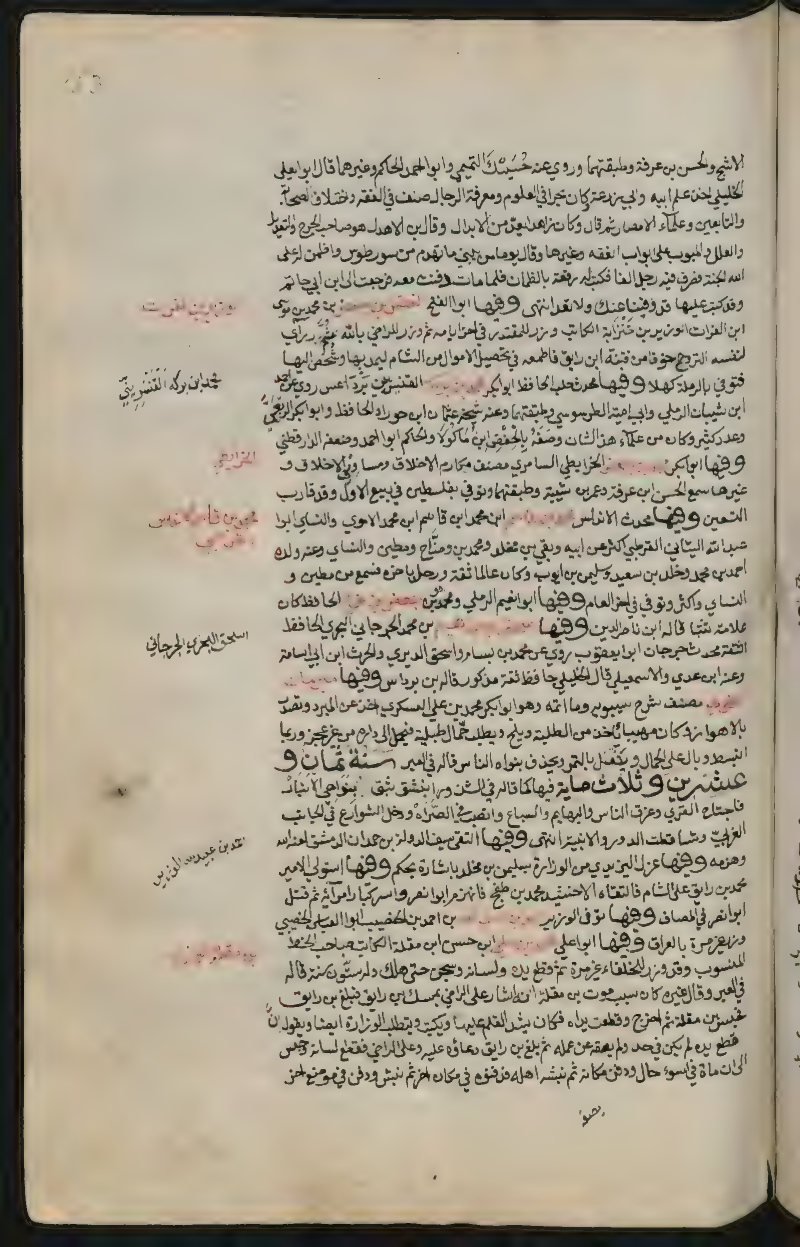 الاشج والحسن بن عرفة وطبقتهما وروي عنه حُسَيْنَك التميمي وابو احمد الحاكم وغيرهما قال ابو يعلى
الخليلي اخذ علم ابيه وابي زرعة كان بحرا في العلوم ومعرفة الرجال صنف في الفقه واختلاف الصحابة
والتابعين وعلماء الامصار ثم قال وكان زاهدا يعد من الابدال وقال بن الاهدل هو صاحب الجرح والتعديل
والعلل والمبوب على ابواب الفقه وغيرها وقال يوما من يبني ما تهدم من سور طوس واضمن له على
الله الجنة فصرف فيه رجل الفا فكتب له رقعة بالضمان فلما مات دفنت معه فرجعت الى ابن ابي حاتم
وقد كتب عليها قد وفينا عنك ولا تعد انتهى وفيها ابو الفتح الفضل بن جعفر بن محمد بن موسى
ابن الفرات الوزير بن خنزابة الكاتب وزر للمقتدر في اخر ايامه ثم وزر للراضي بالله راى
لنفسه التروح خوفا من فتنة ابن رايق فاطمعه في تحصيل الاموال من الشام ليمده بها وشخص اليها
فتوفي بالرملة كهلا وفيها محدث حلب الحافظ ابو بكر القنسريني برداعس روى عن احمد
ابن شيبان الرملي وابي امية الطرسوسي وطبقتهما وعنه شيخه عثمان ابن حوراد الحافظ وابو بكر الربعي
وعدد كثير وكان من علماء هذا الشان وصفه بالحفظ ابن ماكولا والحاكم ابو احمد وضعفه الدارقطني
وفيها ابو بكر الخرايطي السامري مصنف مكارم الاخلاق ومساوئ الاخلاق و
غيرها سمع الحسن ابن عرفة وعمر بن شيبة وطبقتهما وتوفي بفلسطين في ربيع الاول وقد قارب
التسعين وفيها محدث الاندلس ابن محمد ابن قاسم ابن محمد الاموي والشاي ابوا
عبد الله البياني القرطبي اكثر عن ابيه وبقي بن مخلد ومحمد بن وضاح ومطين والنساي وعنه ولده
احمد بن محمد وخلد بن سعيد وسليمن بن ايوب وكان عالما ثقة ورحل باخره فسمع من مطين و
النساي واكثر وتوفي في اخر العام وفيها ابو نعيم الرملي ومحمد بن جعفر الحافظ كان
علامة ثبتا قاله ابن ناصر الدين وفيها بن محمد الجرجاني البحري الحافظ
الثقة محدث جرجان ابو يعقوب روي عن محمد بن بسام واسحق الدبري والحرث ابن ابي اسامة
وعنه ابن عدي والاسمعيلي قال الخليلي حافظ ثقة مذكور قاله بن برداس وفيها مبرمان
مصنف شرح سيبويه وما اتمه وهو ابو بكر محمد بن علي العسكري اخذ عن المبرد وتصدر
بالاهواز وكان مهيبا ياخذ من الطلبة ويلح ويطلب حمال طبلية فيحمل الى داره من غير عجز وربما
انبسط وبال على الحمال ويتنقل بالتمر ويحذف بنواه الناس قاله في العبر سنة ثمان و
عشرين وثلاث ماية فيها كما قاله في الشذور انبثق بثق بنواحي الانبار
فاجتاح القرى وغرق الناس والبهايم والسباع وانصب في الصراة ودخل الشوارع في الجانب
الغربي وتساقطت الدور والابنية انتهى وفيها التقى سيف الدولة بن حمدان الدمشق لعنه الله
وهزمه وفيها عزل البريدي من الوزارة بسليمن بن مخلد باشارة بجكم وفيها استولى الامير
محمد بن رايق على الشام فالتقاه الاخشيد محمد بن طغج فانهزم ابو نصر واسر كبار امراية ثم قتل
ابو نصر في المصاف وفيها توفى الوزير بن احمد بن الخصيب ابوا العباس الخصيبي
وزر غير مرة بالعراق وفيها ابو اعلي ابن حسن ابن مقلة الكاتب صاحب الخط
المنسوب وقد وزر للخلفاء غير مرة ثم قطع يده ولسانه وسجن حتى هلك وله ستون سنة قاله
في العبر وقال غيره كان سبب موت بن مقلة انه اشار على الراضي بمسك ابن رايق فبلغ بن رايق
فحبس بن مقلة ثم اخرج وقطعت يداه فكان يشد القلم عليها ويكتب ويتطلب الوزارة ايضا ويقول ان
قطع يده لم يكن في حد ولم يعقه عن عمله ثم بلغ بن رايق دعاؤه عليه وعلى الراضي فقطع لسانه وحبس
الى ان مات في اسوء حال ودفن مكانه ثم نبشه اهله فدفنوه في مكان اخر ثم نبش ودفن في موضع اخر
محمد ابن بركة القنسريني
الخرايطي
محمد بن قاسم الاندلسي
اسحق البحري الجرجاني
احمد بن عبيد الله الوزير